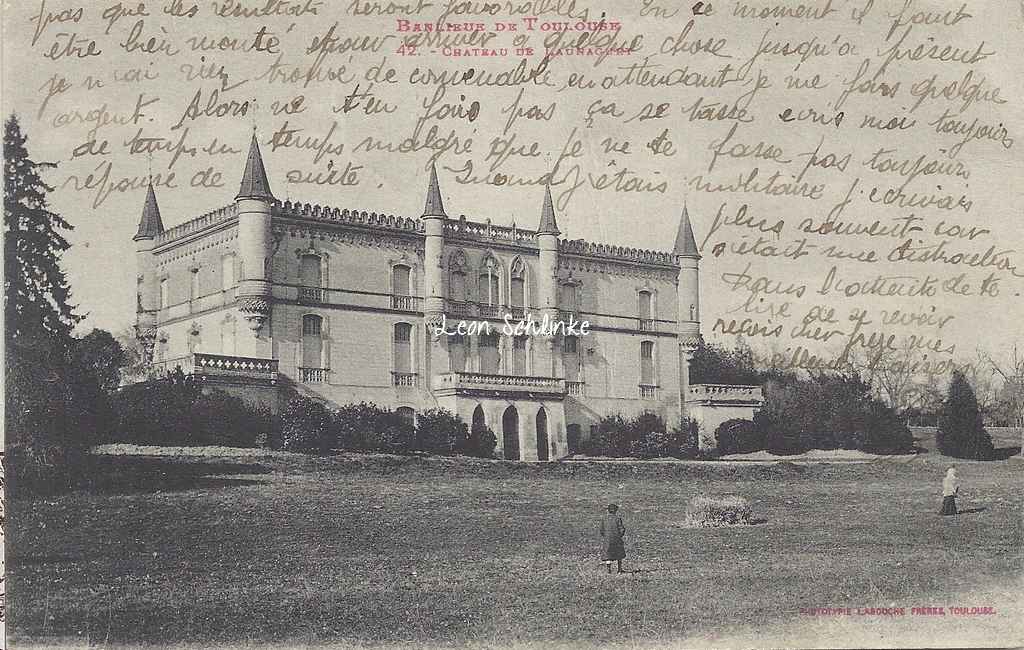 pas que les résultats seront favorables. En ce moment il faut
BANLIEUE DE TOULOUSE
être bien monté pour arriver à quelque chose jusqu'à présent
42. - CHATEAU DE LAUNAGUET
je n'ai rien trouvé de convenable en attendant je me fais quelque
argent. Alors ne t'en fais pas ça se tasse ecris moi toujours
de temps en temps malgré que je ne te fasse pas toujours
réponse de suite. Quand j'étais militaire j'ecrivais
plus souvent car
c'était une distraction
Dans l'attente de te
lire de se revoir
reçois cher frère mes
Leon Schlinke
PHOTOTYPIE LABOUCHE FRÈRES, TOULOUSE.